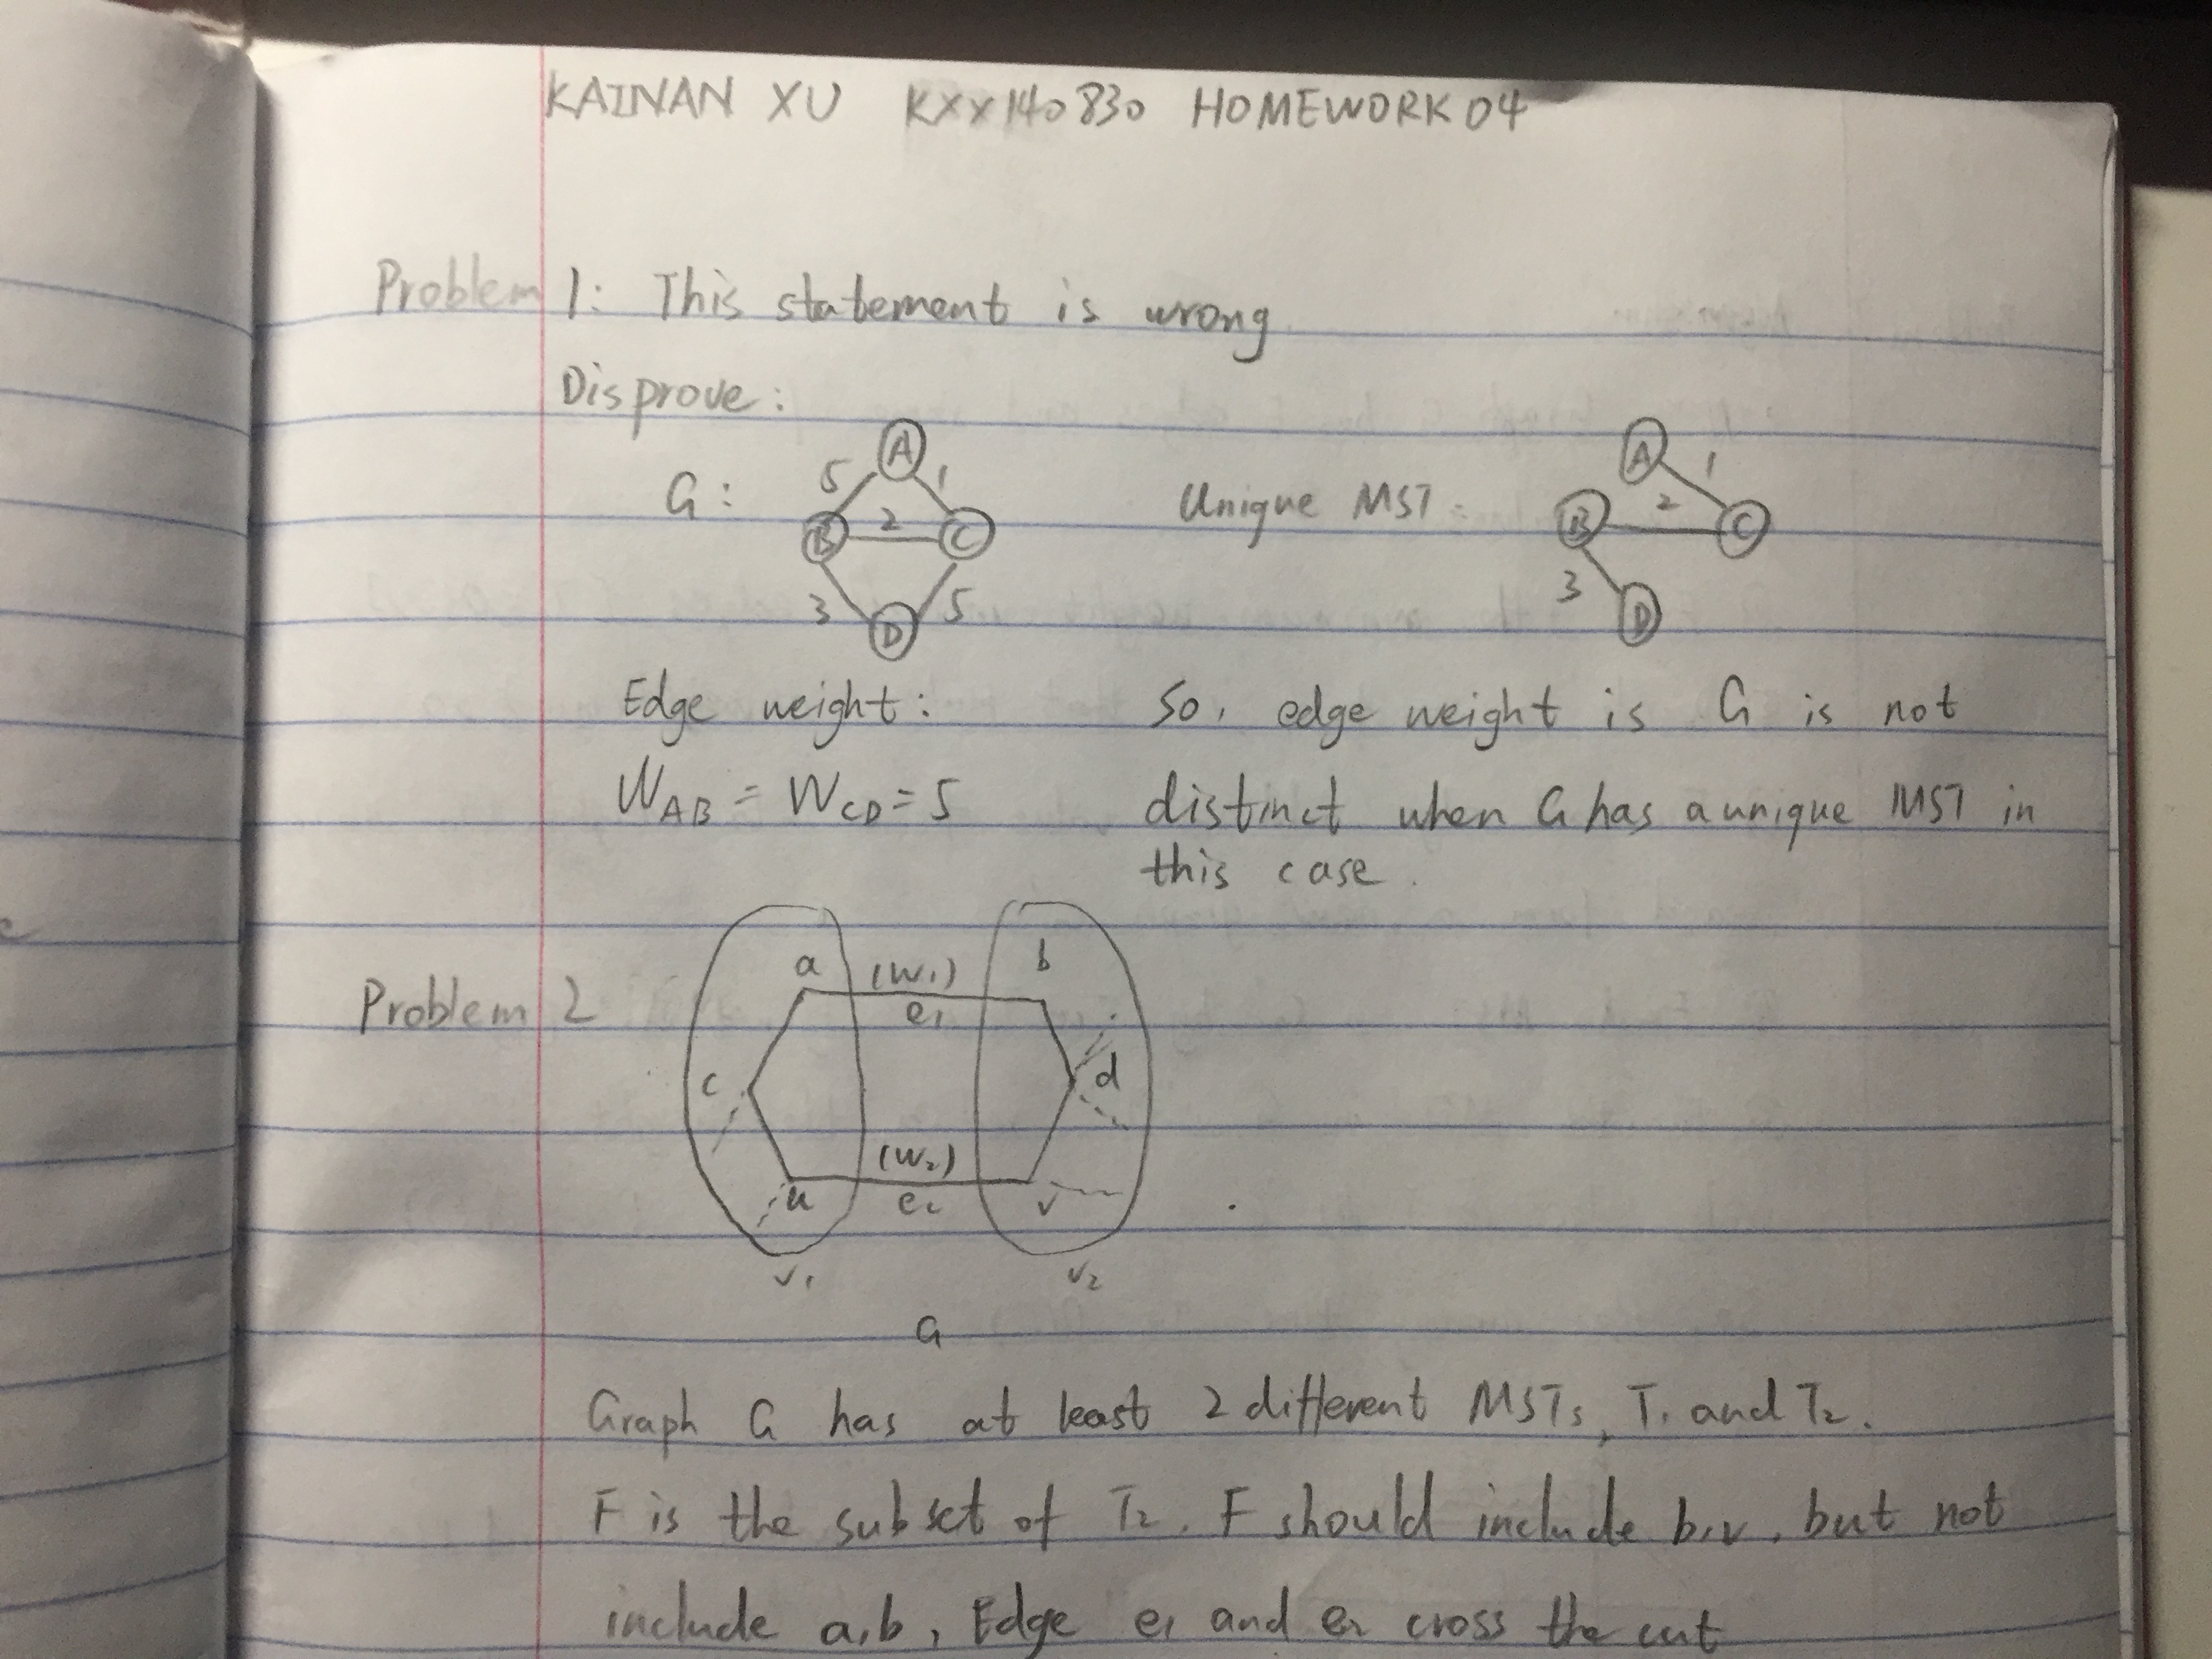 KAINAN XU KXX140830 HOMEWORK 04
Problem 1: This statement is wrong.
Disprove:
G: A 5 1 B 2 C 3 5 D
Unique MST: A 1 B 2 C 3 D
Edge weight:
W_AB = W_CD = 5
So, edge weight is G is not
distinct when G has a unique MST in
this case.
Problem 2
a (w₁) b
e₁
c d
(w₂)
u e₂ v
v₁ v₂
G
Graph G has at least 2 different MSTs, T₁ and T₂.
F is the subset of T₂. F should include b,v, but not
include a,b, Edge e₁ and e₂ cross the cut